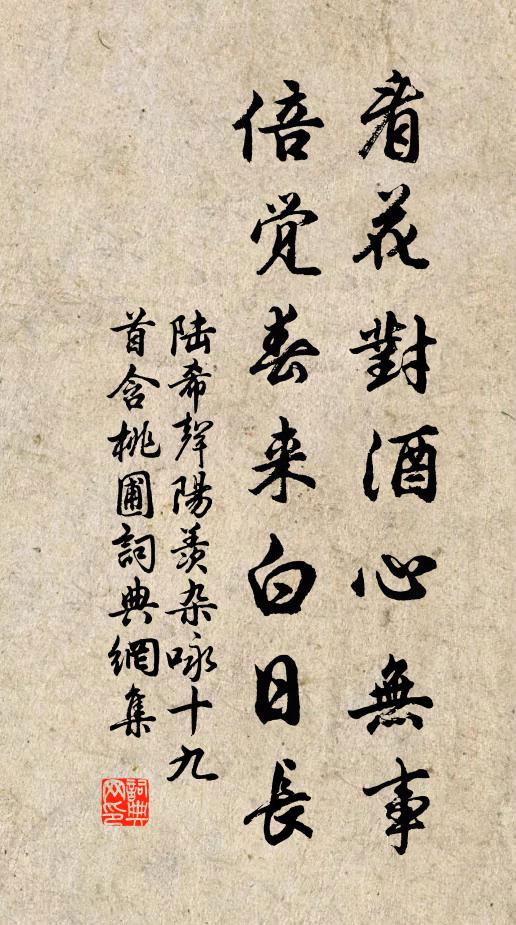 看花對酒心無事
倍觉春来白日長
陆希聲陽羨杂咏十九
首含桃圃詞典網集
詞典网印